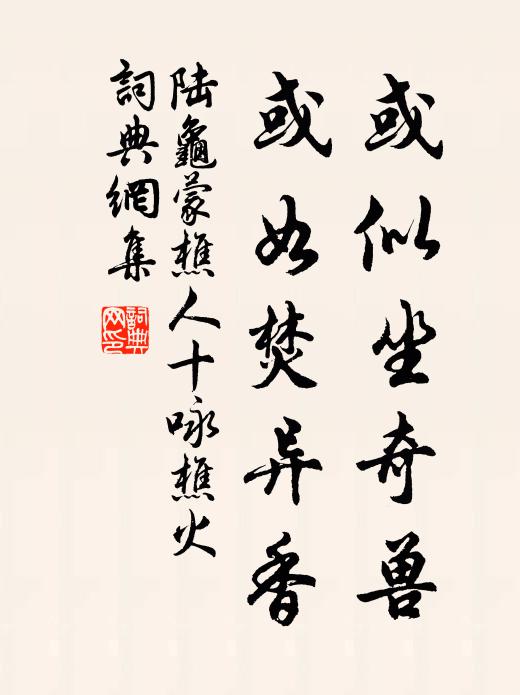 或似坐奇兽
或如焚异香
陆龜蒙樵人十咏樵火
詞典網集
詞典
网印